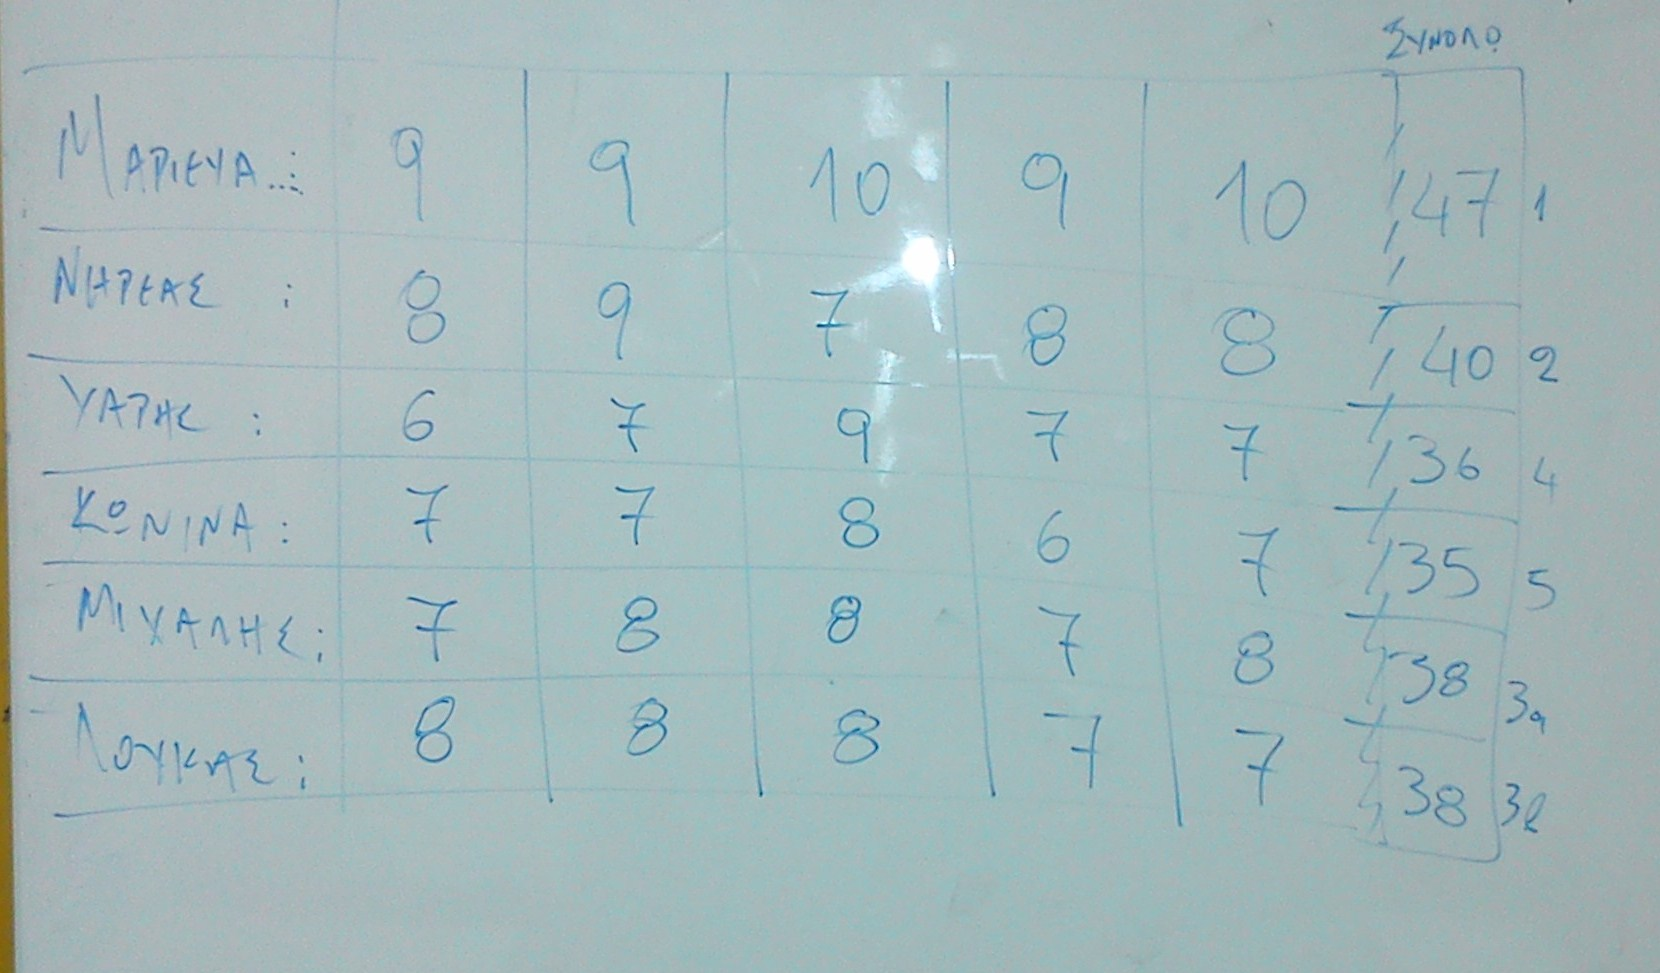 ΣΥΝΟΛΟ
ΜΑΡΙΕΥΑ..: 9 9 10 9 10 47 1
ΝΗΡΕΑΣ : 8 9 7 8 8 40 2
ΥΑΡΗΣ : 6 7 9 7 7 36 4
ΚΩΝΙΝΑ : 7 7 8 6 7 35 5
ΜΙΧΑΛΗΣ : 7 8 8 7 8 38 3α
ΛΟΥΚΑΣ : 8 8 8 7 7 38 3β